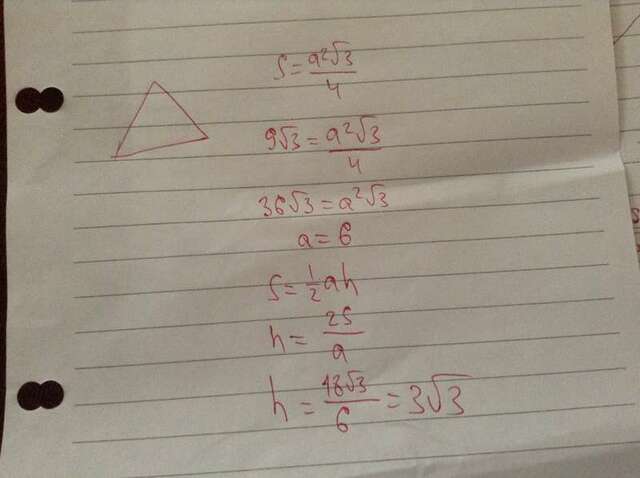 S = a²√3/4
9√3 = a²√3/4
36√3 = a²√3
a = 6
S = 1/2 ah
h = 2S/a
h = 18√3/6 = 3√3